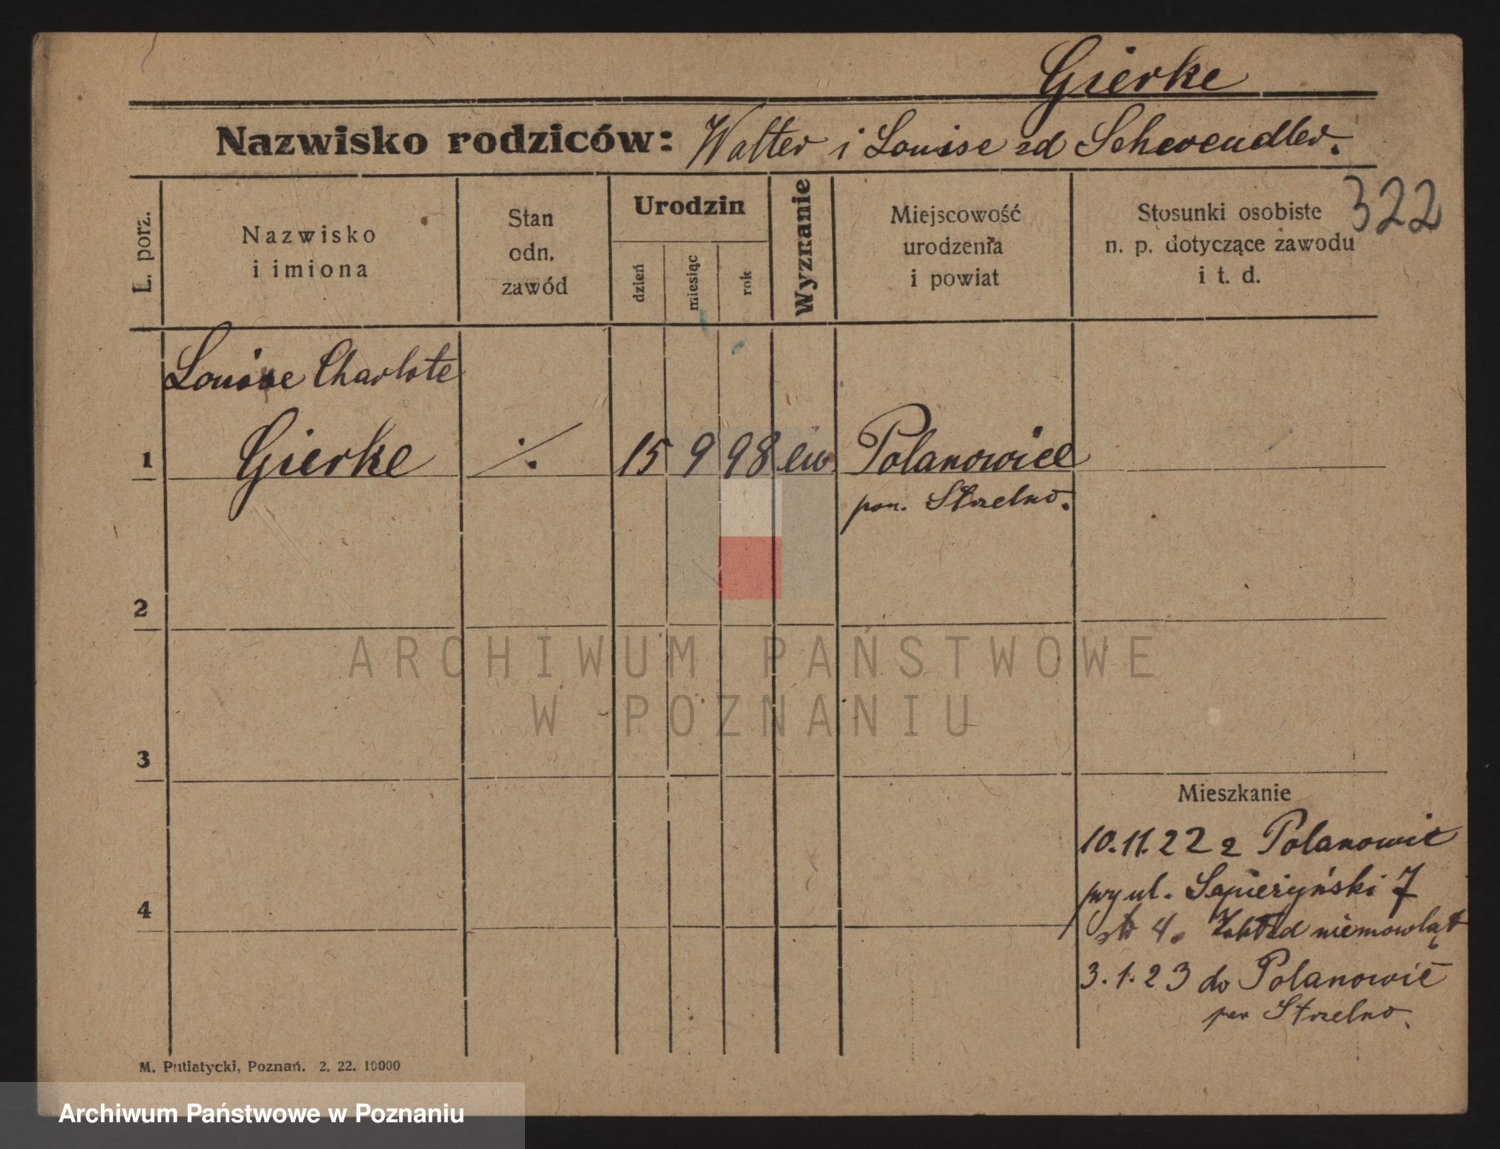 Gierke
Nazwisko rodziców: Walter i Louise zd Schwendler.
322
L. porz.
Nazwisko
i imiona
Stan
odn.
zawód
Urodzin
dzień
miesiąc
rok
Wyznanie
Miejscowość
urodzenia
i powiat
Stosunki osobiste
n. p. dotyczące zawodu
i t. d.
Louise Charlote
1 Gierke ·/. 15 9 98 ew Polanowice
pow. Strzelno.
2
ARCHIWUM PAŃSTWOWE
W POZNANIU
3
Mieszkanie
10.11.22 z Polanowic
przy ul. Sapieżyński 7
4. Zakład niemowląt
4
3.1.23 do Polanowic
Strzelno.
M. Putiatycki, Poznań. 2. 22. 10000
Archiwum Państwowe w Poznaniu